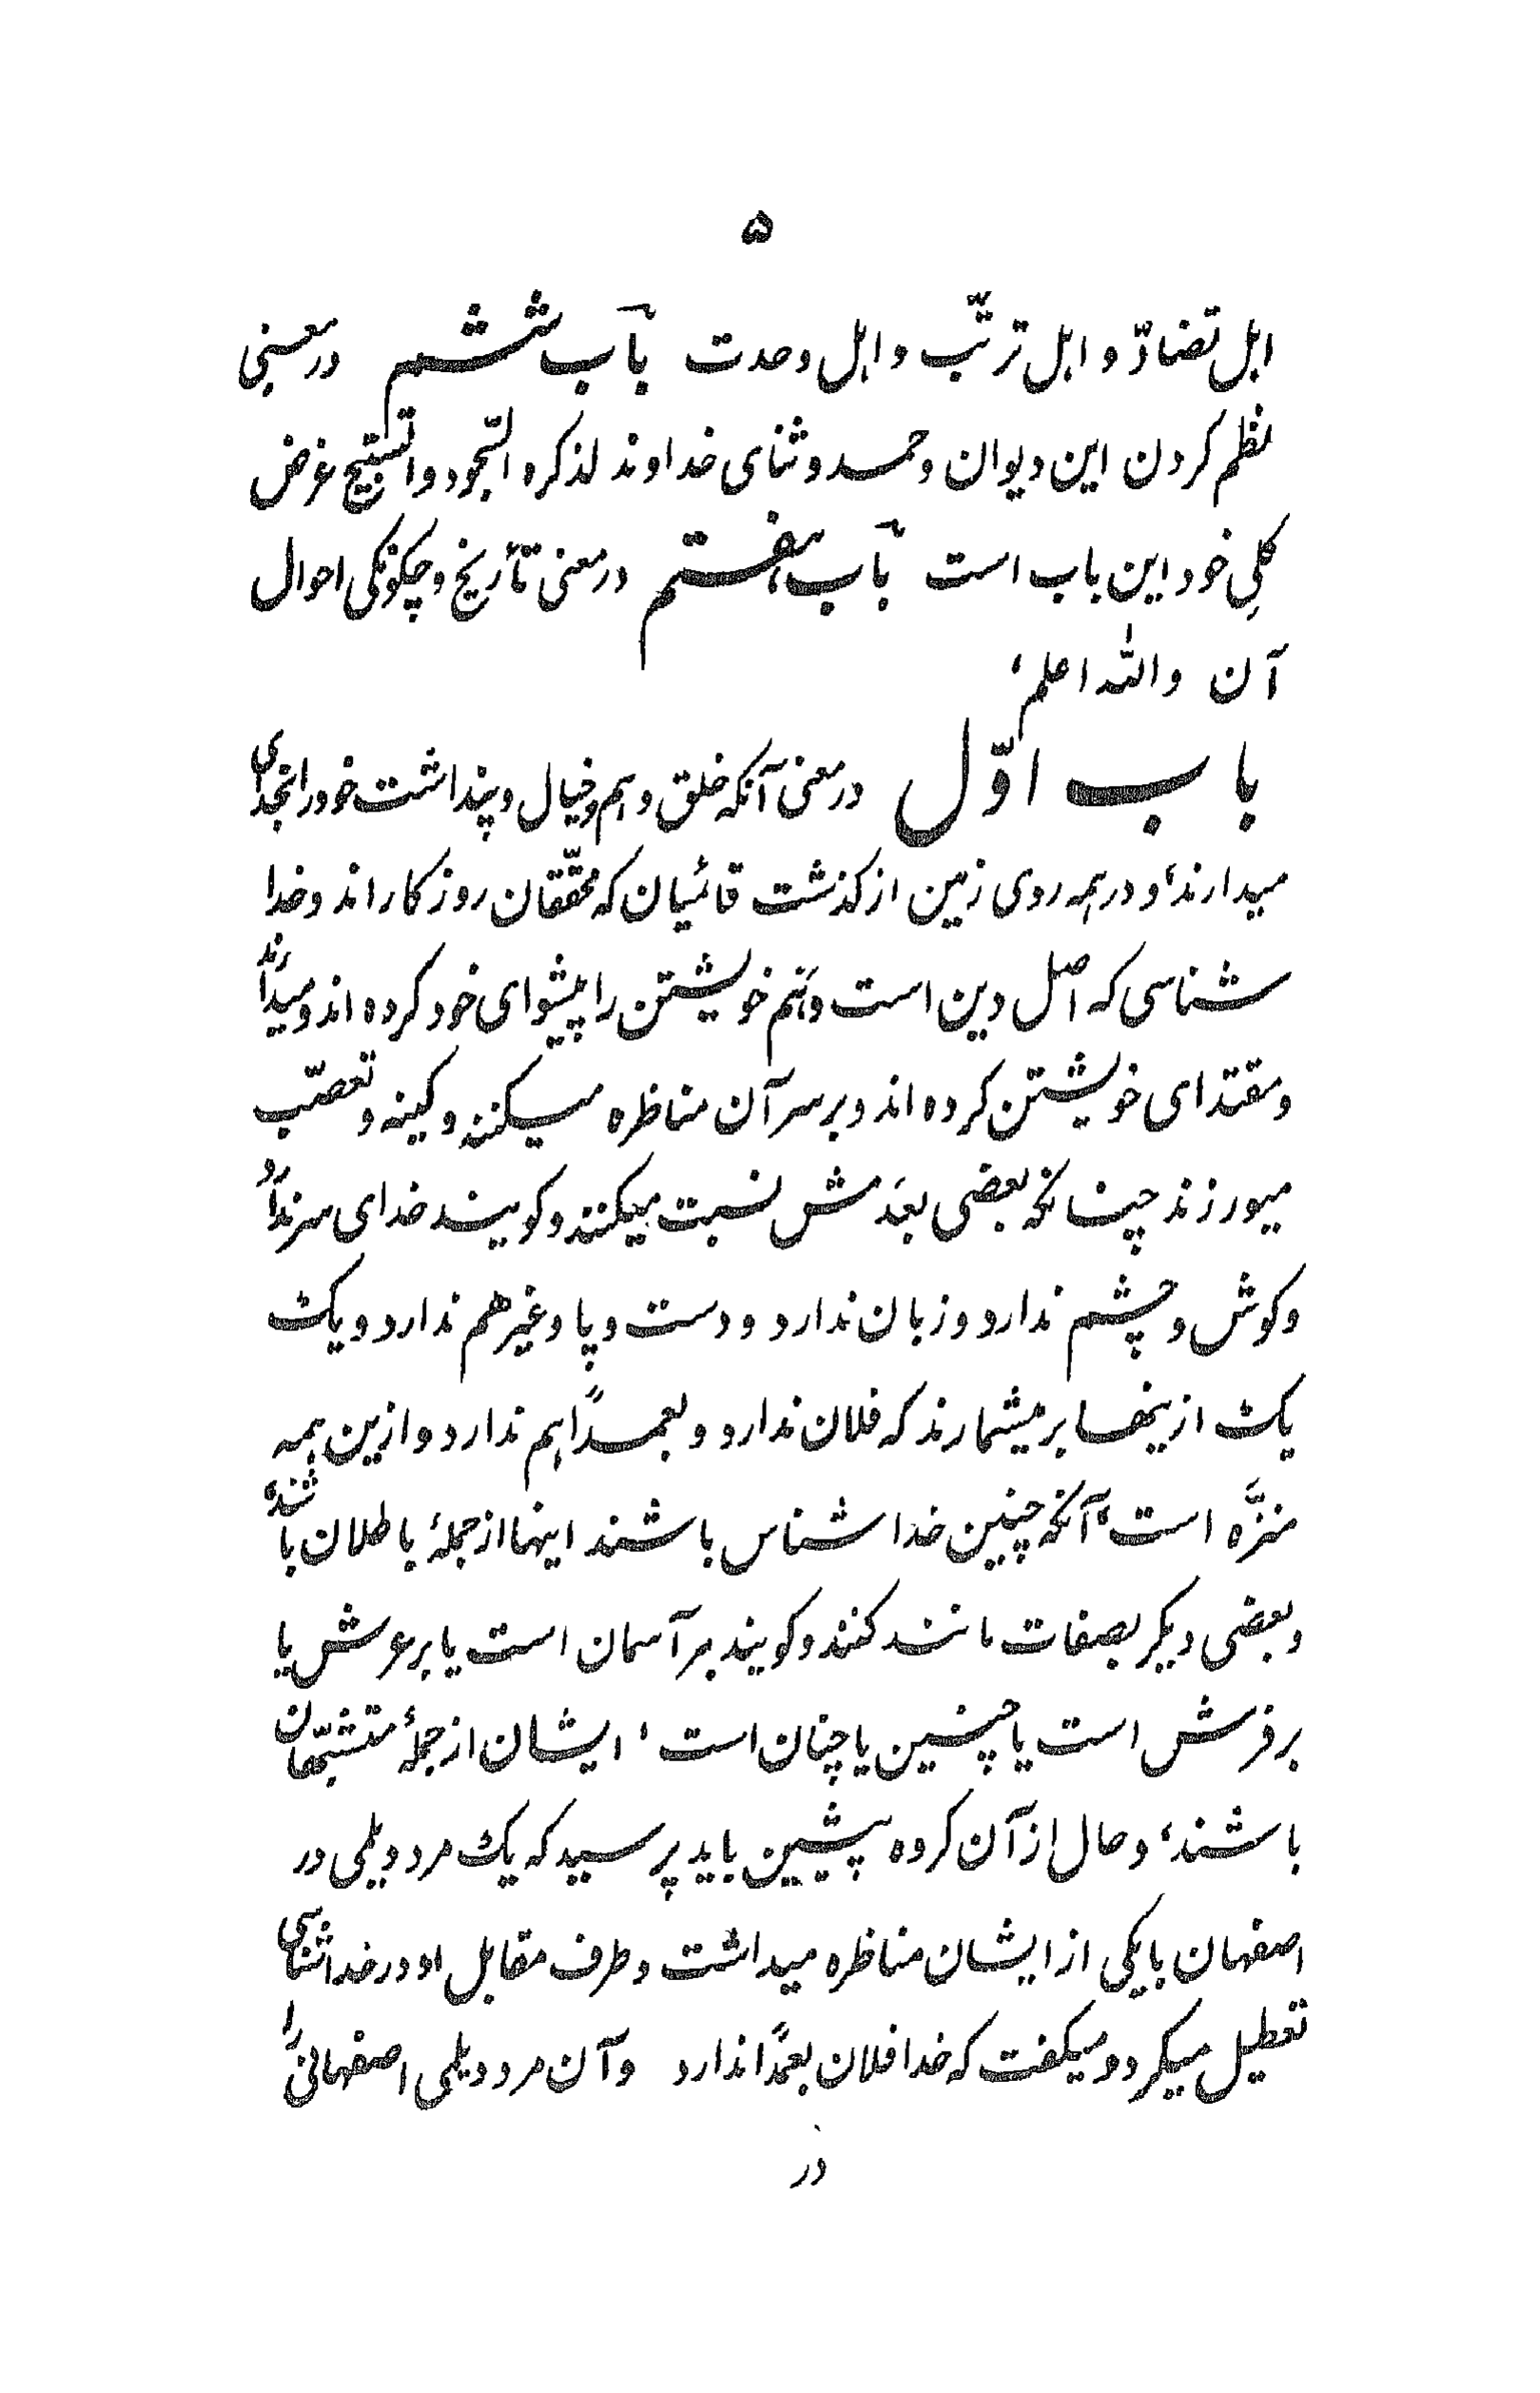 ۵
اهل تضادّ و اهل ترتّب و اهل وحدت باب ششم در معنی
نظم کردن این دیوان و حمد و ثنای خداوند لذکره السّجود و التّسبیح غرض
کلیِ خود این باب است باب هفتم در معنی تأریخ و چکونکی احوال
آن واللّٰه اعلم،
باب اوّل در معنی آنکه خلق وهم و خیال و پنداشت خود را بخدای
میدارند، و در همه روی زمین از کذشت قائمیان که محقّقان روزکاراند و خدا
شناسی که اصل دین است وَهْم خویشتن را پیشوای خود کرده اند و میدارند
و مقتدای خویشتن کرده اند و بر سر آن مناظره میکنند و کینه و تعصّب
میورزند چنانکه بعضی بعَدَمش نسبت میکنند و کویند خدای سر ندارد
و کوش و چشم ندارد و زبان ندارد و دست و پا و غیرهم ندارد و یک
یک ازینها بر میشمارند که فلان ندارد و بهمداً هم ندارد و ازین همه
منزَّه است، آنکه چنین خدا شناس باشند اینها از جملهٔ باطلان باشند،
و بعضی دیکر بصفات مانند کنند و کویند بر آسمان است یا بر عرش یا
بر فرش است یا چنین یا چنان است، ایشان از جملهٔ متشبّهان
باشند، و حال از آن کروه پیشین باید پرسید که یک مرد دیلمی در
اصفهان با یکی از ایشان مناظره میداشت و طرف مقابل او در خداشناسی
تعطیل میکرد و میکفت که خدا فلان بهمداً ندارد و آن مرد دیلمی اصفهانی را
در